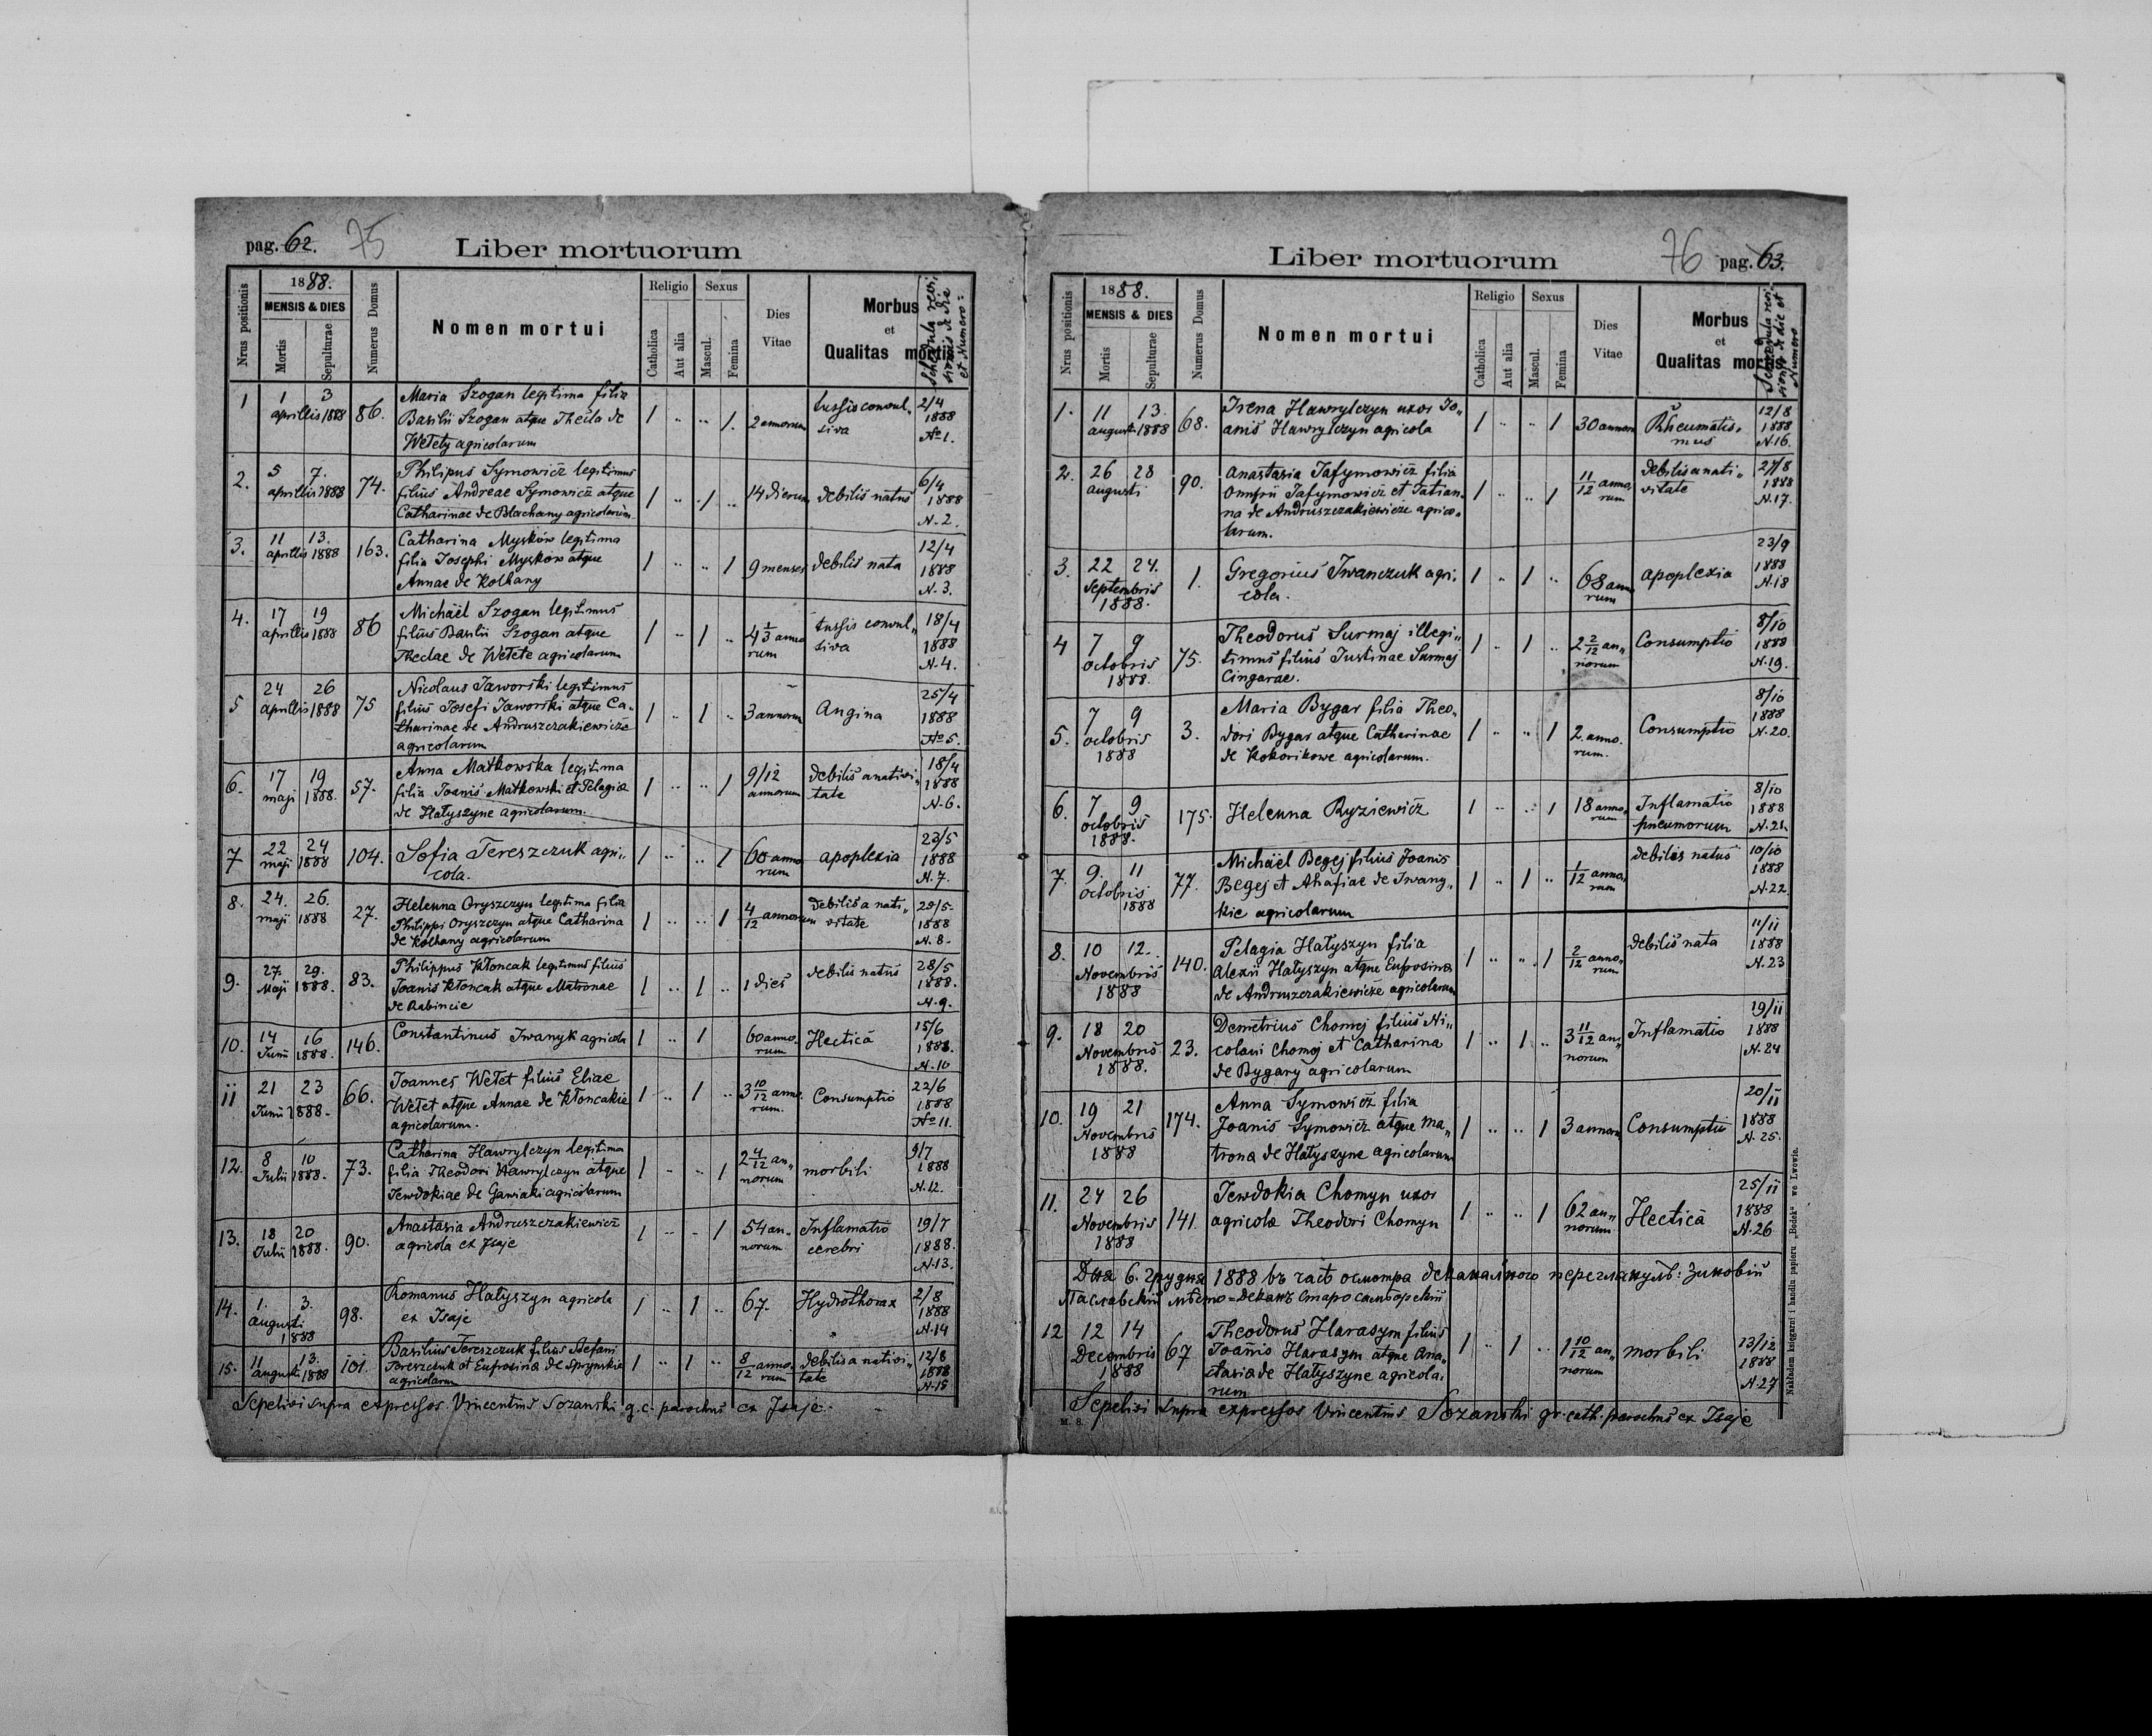 pag. 62. 75
Liber mortuorum
Nrus positionis
1888.
MENSIS & DIES
Mortis
Sepulturae
Numerus Domus
Nomen mortui
Religio
Catholica
Aut alia
Sexus
Mascul.
Femina
Dies
Vitae
Morbus
et
Qualitas mortis
Schedula revi:
sionis de die
et Numero:
1 1 3 86. Maria Szogan legitima filia
aprillis 1888 Basilii Szogan atque Thecla de
Wełety agricolarum
1 .. .. 1. 2 annorum tussis convul„
siva
2/4
1888
No 1.
2. 5 7. 74. Philipus Symowicz legitimus
aprillis 1888 filius Andreae Symowicz atque
Catharinae de Blachany agricolarum
1 .. 1 .. 14 dierum debilis natus
6/4
1888
N. 2.
3. 11 13. 163. Catharina Myśków legitima
aprillis 1888 filia Josephi Myśkow atque
Annae de Kolhany
1 .. .. 1 9 menses debilis nata
12/4
1888
N. 3.
4. 17 19 86 Michaël Szogan legitimus
aprillis 1888 filius Basilii Szogan atque
Theclae de Wełete agricolarum
1 .. 1 .. 4 1/3 anno
rum
tussis convul„
siva
18/4
1888
N. 4.
5 24 26 75 Nicolaus Jaworski legitimus
aprillis 1888 filius Josefi Jaworski atque Ca„
tharinae de Andruszczakiewicze
agricolarum
1 .. 1 .. 3 annorum Angina
25/4
1888
No 5.
6. 17 19 57. Anna Matkowska legitima
maji 1888. filia Joanis Matkowski et Pelagia
de Hałyszyne agricolarum.
1 .. .. 1 9/12
annorum
debilis a nativi„
tate
18/4
1888
N. 6.
7 22 24 104. Sofia Tereszczuk agri„
maji 1888 cola.
1 .. .. 1 60 anno
rum
apoplexia
23/5
1888
N. 7.
8. 24. 26. 27. Helenna Oryszczyn legitima filia
maji 1888 Philippi Oryszczyn atque Catharina
de Kolhany agricolarum
1 .. .. 1 4/12 annorum debilis a nati„
vitate
25/5.
1888
N. 8.
9. 27. 29. 83. Philippus Kłoncak legitimus filius
Maji 1888. Joanis Kłoncak atque Matronae
de Rabincie
1 .. 1 .. 1 dies debilis natus
28/5
1888.
N. 9.
10. 14 16 146. Constantinus Iwanyk agricola
Junii 1888.
1 .. 1 60 anno
rum
Hectica
15/6
1888.
N. 10
11 21 23 66. Joannes Wełet filius Eliae
Junii 1888. Wełet atque Annae de Kłoncakie
agricolarum.
1 .. 1 .. 3 10/12 anno
rum.
Consumptio
22/6
1888
No 11.
12. 8 10 73. Catharina Hawrylczyn legitima
Julii 1888. filia Theodori Hawrylczyn atque
Jewdokiae de Gawiaki agricolarum
1 .. .. 1 2 4/12 an„
norum
morbili
9/7
1888
N. 12.
13. 18 20 90. Anastasia Andruszczakiewicz
Julii 1888. agricola ex Isaje
1 .. .. 1 54 an„
norum
Inflamatio
cerebri
19/7
1888.
N. 13.
14. 1. 3. 98. Romanus Hałyszyn agricola
augusti ex Isaje
1888
1 .. 1 .. 67. Hydrothorax
2/8
1888
N. 14
15. 11 13. 101. Basilius Tereszczuk filius Stefani
augusti 1888 Tereszczuk et Eufrosina de Sprynskie
agricolarum
1 .. 1 .. 8/12 anno
rum
debilis a nativi„
tate
12/8
1888
N. 15
Sepelivi supra expressos Vincentius Sozanski g. c. parochus ex Isaje.
Liber mortuorum
76 pag. 63.
Nrus positionis
1888.
MENSIS & DIES
Mortis
Sepulturae
Numerus Domus
Nomen mortui
Religio
Catholica
Aut alia
Sexus
Mascul.
Femina
Dies
Vitae
Morbus
et
Qualitas mortis
Schedula revi„
sionis de die et
Numero
1. 11 13. 68. Irena Hawrylczyn uxor Jo„
augusti 1888 anis Hawrylczyn agricola
1 .. .. 1 30 annorum Rheumatis„
mus
12/8
1888
N. 16.
2. 26 28 90. Anastasia Jafymowicz filia
augusti Onufrii Jafymowicz et Tatian„
na de Andruszczakiewicze agrico„
larum.
1 .. .. 1 11/12 anno
rum
debilis a nati„
vitate
27/8
1888
N. 17.
3. 22 24. 1. Gregorius Iwanczuk agri„
Septembris cola.
1888.
1 .. 1 .. 68 anno
rum
apoplexia
23/9
1888
N. 18
4 7 9 75. Theodorus Surmaj illegi„
octobris timus filius Justinae Surmaj
1888. Cingarae.
1 .. 1 .. 2 2/12 an„
norum
Consumptio
8/10
1888
N. 19.
5. 7 9 3. Maria Bygar filia Theo„
octobris dori Bygar atque Catharinae
1888 de Kokorikowe agricolarum.
1 .. .. 1 2. anno.
rum.
Consumptio
8/10
1888
N. 20.
6. 7 9. 175. Helenna Ryziewicz
octobris
1888.
1 .. .. 1 18 anno„
rum
Inflamatio
pneumorum
8/10
1888
N. 21.
7. 9. 11 77. Michäel Begej filius Joanis
octobris Begej et Ahafiae de Iwany„
1888 kie agricolarum
1 .. 1 .. 1/12 anno„
rum
debilis natus
10/10
1888
N. 22.
8. 10 12. 140. Pelagia Hałyszyn filia
Novembris Alexii Hałyszyn atque Eufrosina
1888 de Andruszczakiewicze agricolarum
1 .. .. 1 2/12 anno„
rum
debilis nata
11/11
1888
N. 23
9. 18 20 23. Demetrius Chomej filius Ni„
Novembris colaui Chomej et Catharina
1888. de Bygary agricolarum
1 .. 1 .. 3 11/12 an„
norum
Inflamatio
19/11
1888
N. 24
10. 19 21 174. Anna Symowicz filia
Novembris Joanis Symowicz atque Ma„
1888 trona de Hałyszyne agricolarum
1 .. .. 1 3 annorum Consumptio
20/11
1888
N. 25.
11. 24 26 141. Jewdokia Chomyn uxor
Novembris agricolae Theodori Chomyn
1888
1 .. .. 1 62 an„
norum
Hectica
25/11
1888
N. 26
Дня 6. грудня 1888 въ часѣ осмотра деканального
12 12 14 67 Theodorus Harasym filius
Decembris Joannis Harasym atque Ana„
1888 stasia de Hałyszyne agricola„
rum
1 .. 1 .. 1 10/12 an„
norum
morbili
13/12
1888
N. 27
Sepelivi supra expressos Vincentius Sozanski gr. cath. parochus ex Isaje
M. 8.
Nakładem księgarni i handlu papieru „Bodek“ we Lwowie.